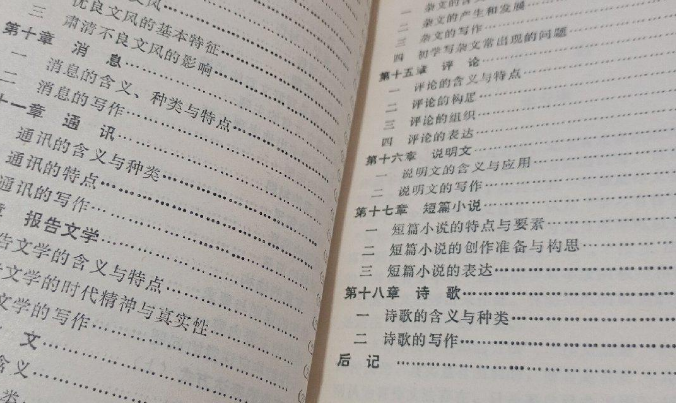 文风
三 优良文风的基本特征
四 肃清不良文风的影响
第十章 消息
一 消息的含义、种类与特点
二 消息的写作
十一章 通讯
通讯的含义与种类
通讯的特点
通讯的写作
章 报告文学
告文学的含义与特点
文学的时代精神与真实性
文学的写作
文
含义
类
一 杂文的含义
二 杂文的产生和发展
三 杂文的写作
四 初学写杂文常出现的问题
第十五章 评论
一 评论的含义与特点
二 评论的构思
三 评论的组织
四 评论的表达
第十六章 说明文
一 说明文的含义与应用
二 说明文的写作
第十七章 短篇小说
一 短篇小说的特点与要素
二 短篇小说的创作准备与构思
三 短篇小说的表达
第十八章 诗歌
一 诗歌的含义与种类
二 诗歌的写作
后记